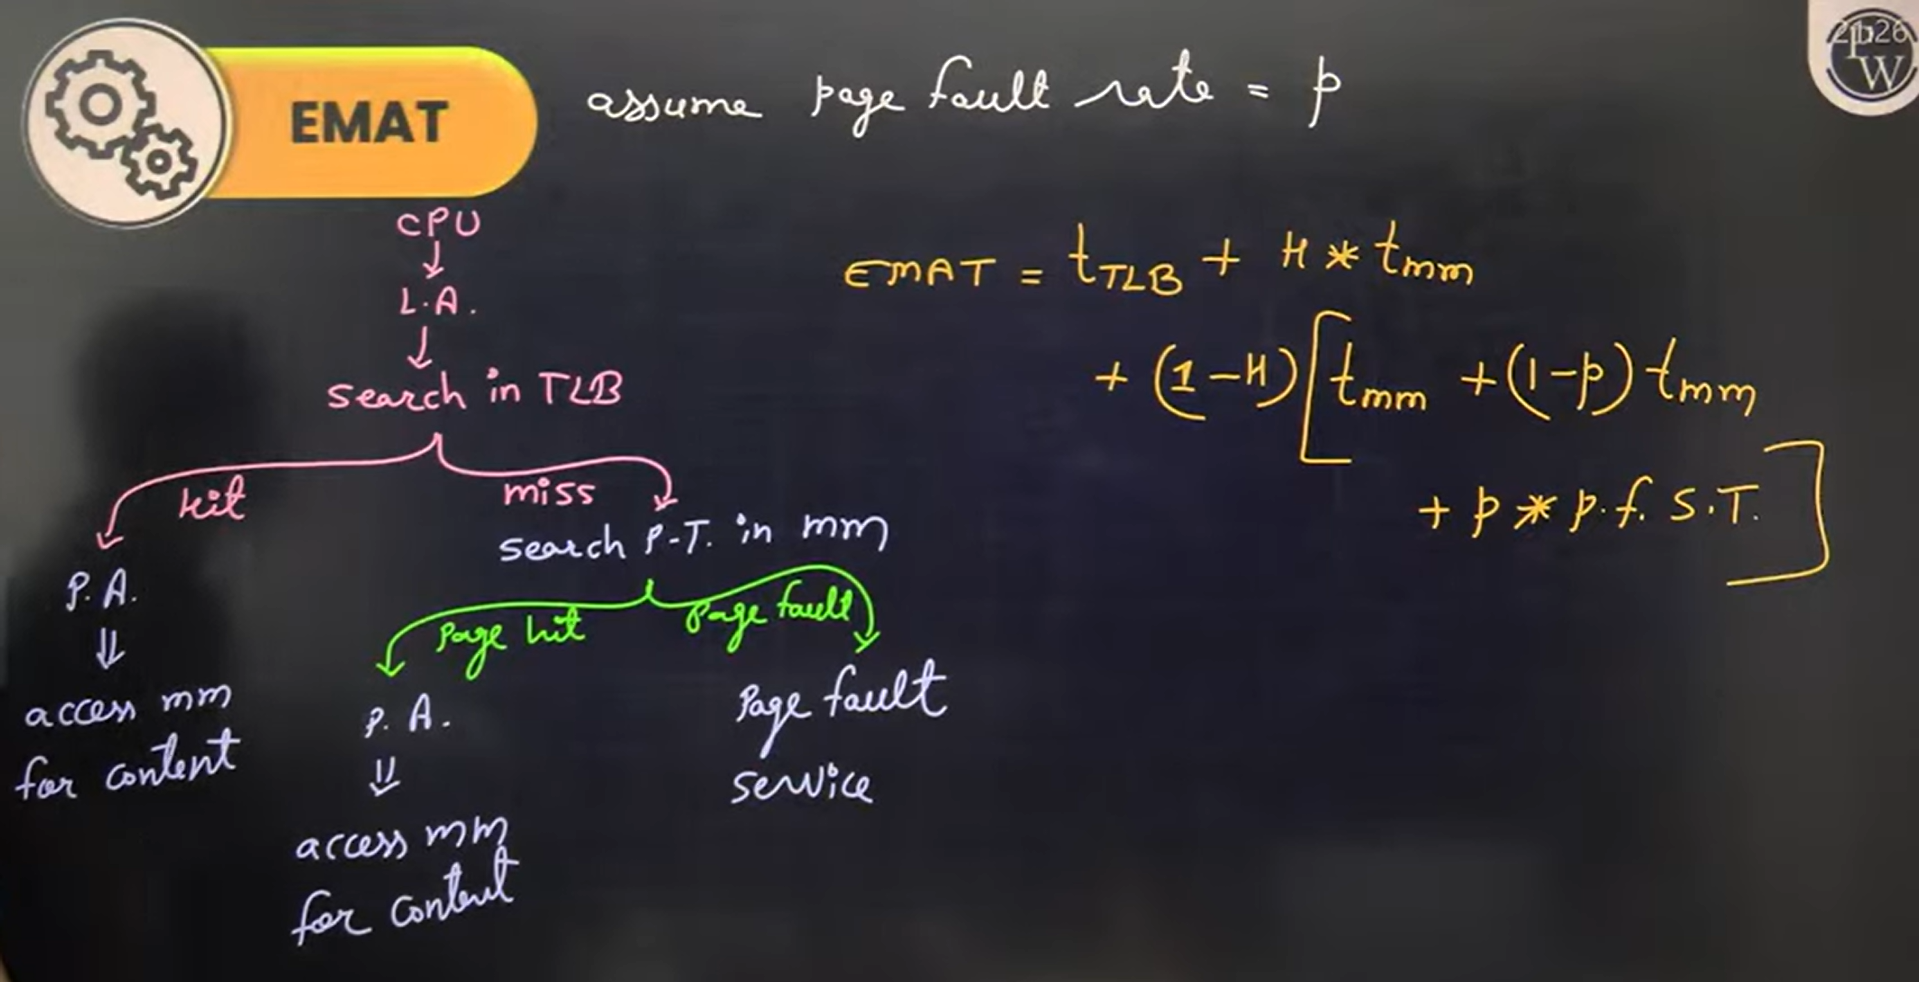 EMAT
assume page fault rate = p
PW
CPU
L.A.
search in TLB
hit
miss
P.A.
access mm
for content
search P.T. in mm
Page hit
Page fault
P.A.
access mm
for content
Page fault
service
EMAT = tTLB + H * tmm
+ (1-H) [ tmm + (1-p) tmm
+ p * p.f. S.T. ]